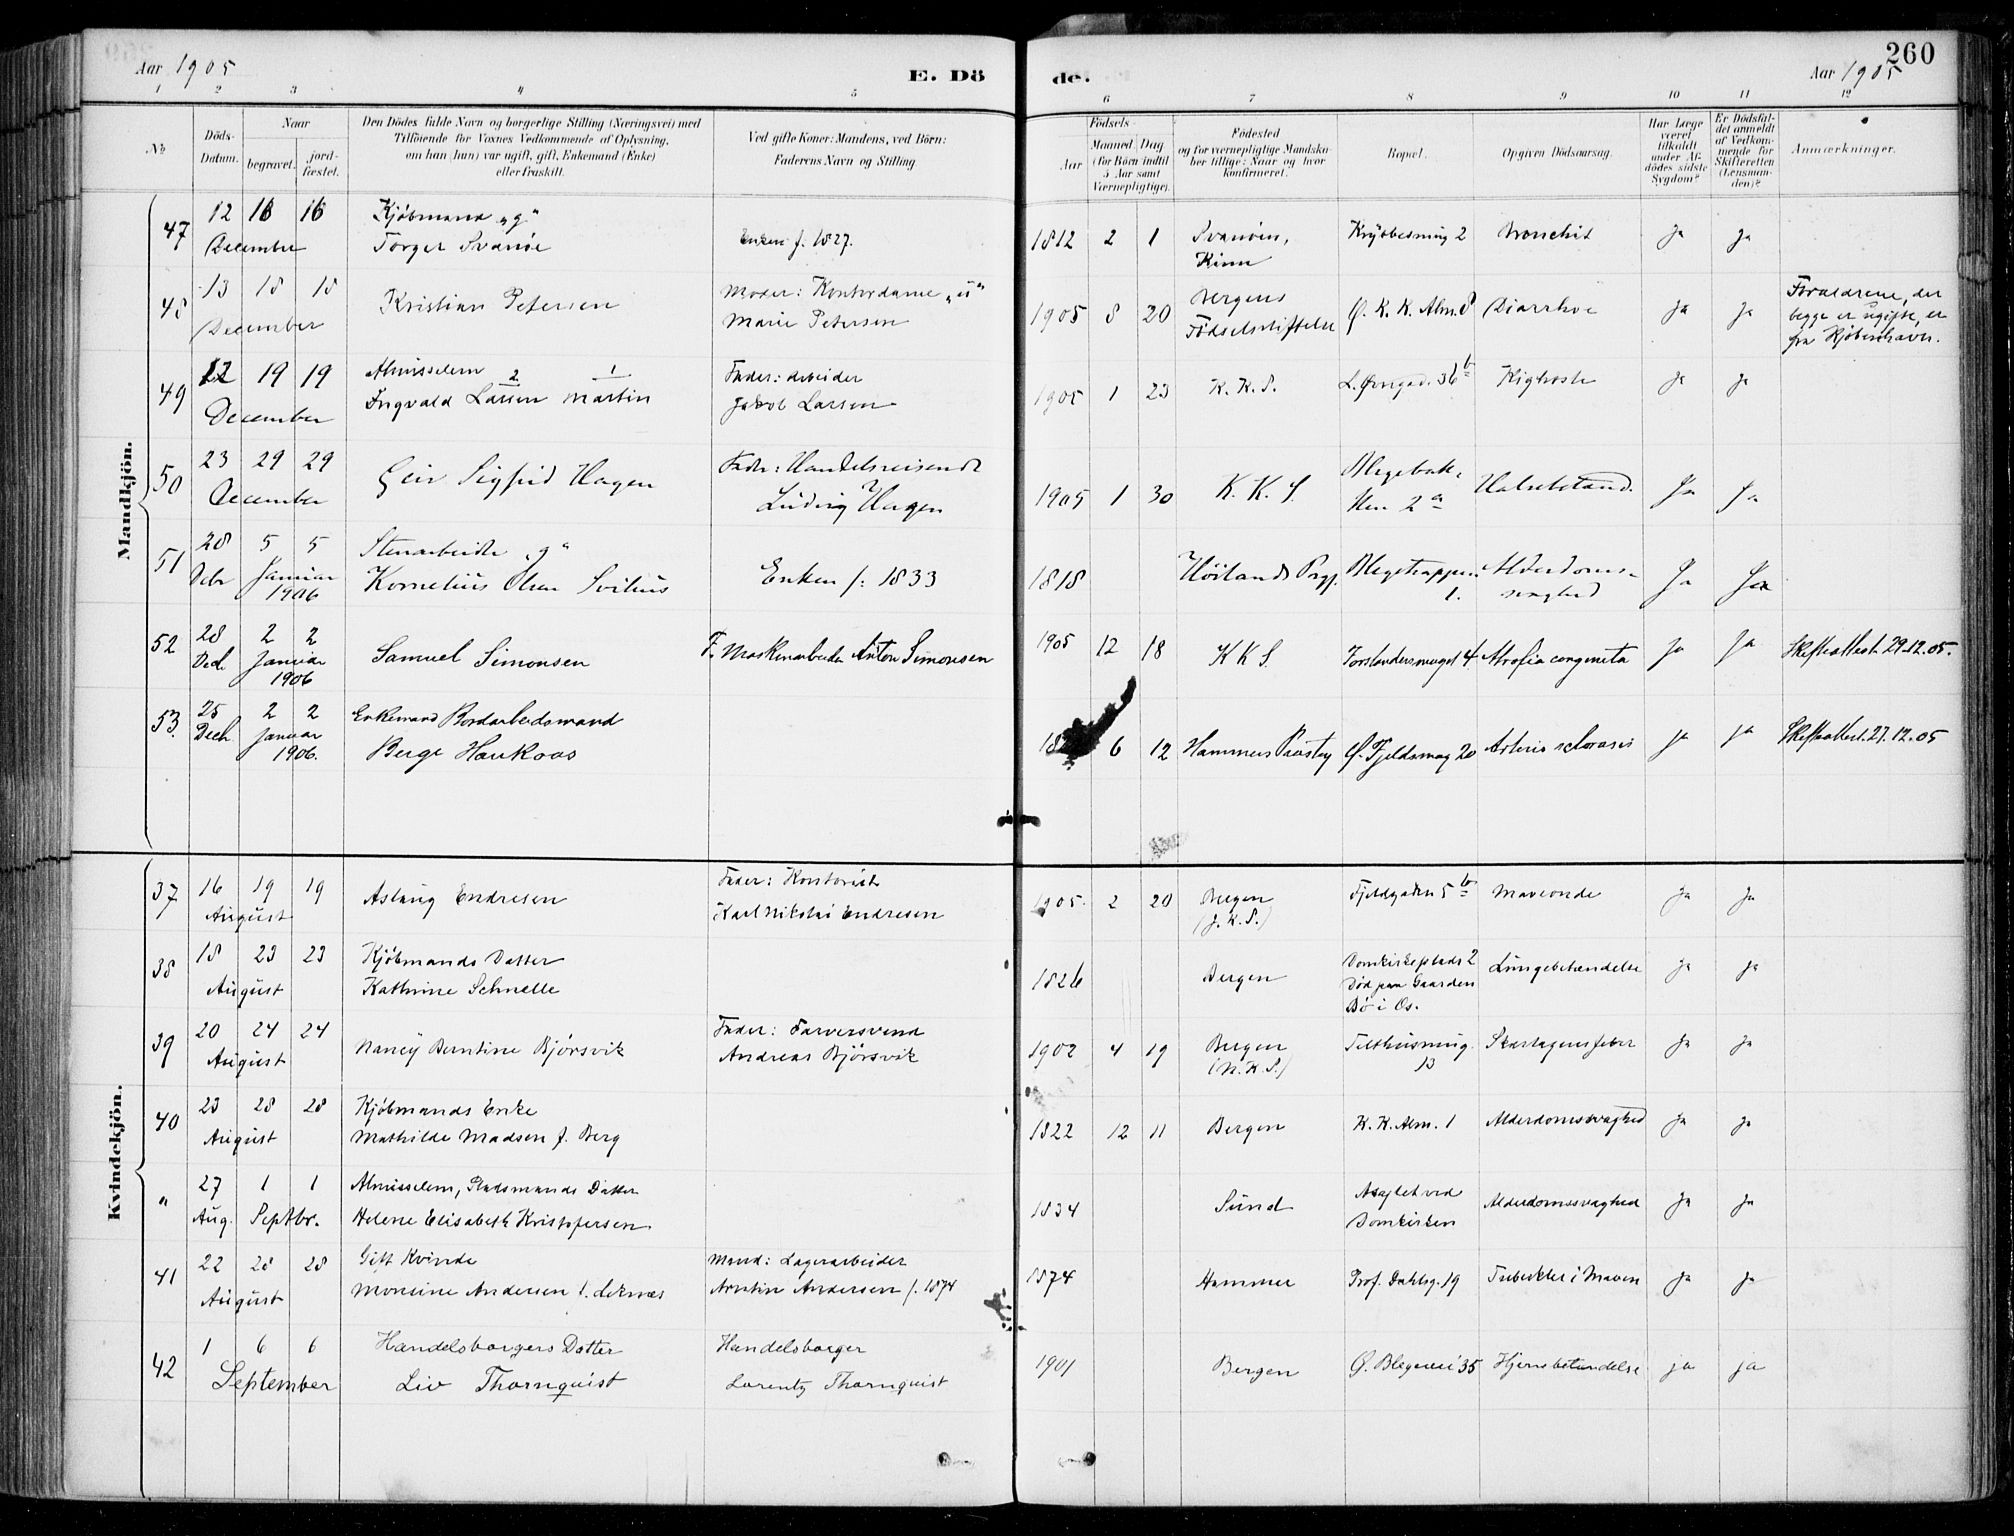 260
Aar 1905
E. Dö
de.
Aar 1905
1 2 3 4 5 6 7 8 9 10 11 12
№
Döds-Datum.
Naar
begravet.
jord-fæstet.
Den Dödes fulde Navn og borgerlige Stilling (Næringsvei) med
Tilföiende for Voxnes Vedkommende af Oplysning,
om han (hun) var ugift, gift, Enkemand (Enke)
eller fraskilt.
Ved gifte Koner: Mandens, ved Börn:
Faderens Navn og Stilling.
Födsels
Aar
Maaned
Dag
(for Börn indtil
5 Aar samt
Værnepligtige).
Födested
og for værnepligtige Mandska-
ber tillige: Naar og hvor
konfirmeret.
Bopæl.
Opgiven Dödsaarsag.
Har Læge
været
tilkaldt
under Af-
dödes sidste
Sygdom?
Er Dödsfal-
det anmeldt
af Vedkom-
mende for
Skifteretten
(Lensman-
den)?
Anmærkninger.
Mandkjön.
47 12 16 16 Kjöbmand „g“ 1812 2 1 Svanöen, Bronchit ja ja
December Torger Svanöe Enken f. 1827. Kinn
48 13 18 18 Kristian Petersen Moder: Kontordame „ü“ 1905 8 20 Bergens Ø. K. K. Alm. 8 Diarrhoe ja ja Forældrene, der
December Marie Petersen Födselsstiftelse begge er ugifte, er
fra Kjöbenhavn.
49 12 19 19 Almisselem Fader: Arbeider 1905 1 23 K. K. S. Kighoste ja ja
December Ingvald Larsen Martin Jakob Larsen
2 1
50 23 29 29 Geir Sigfrid Hagen Fader: Handelsreisende 1905 1 30 K. K. S. Ja Ja
December Ludvig Hagen 2 a
51 28 5 5 Stenarbeider „g“ Enken f: 1833 1818 Höilands Prgj. Alderdoms- Ja Ja
Decbr Januar Kornelius Olsen 1. svaghed
1906
52 28 2 2 Samuel Simonsen F. Anton Simonsen 1905 12 18 K K S. 4 Atrofia congenita ja ja Skifteattest. 29.12.05.
Dec. Januar
1906
53. 25 2 2 Enkemand Bordarbeidsmand 6 12 Hammers Præsteg Ø. Fjeldsmug 20 Arterio sclerosis ja ja Skifteattest. 27.12.05
Decb. Januar Berge Haukaas
1906.
Kvindekjön.
37 16 19 19 Aslaug Endresen Fader: Kontorist 1905. 2 20 Bergen Fjeldgaden 5 b Maveonde ja ja
August Karl Nikolai Endresen (J. K. S.)
38 18 23 23 Kjöbmands Datter 1826 Bergen Domkirkeplads 2 Lungebetændelse ja ja
August Kathrine Schnelle Död paa Gaarden
Bö i Os.
39 20 24 24 Nancy Berntine Bjørsvik Fader: Farversvend 1902 4 19 Bergen Telthusmug. Skarlagensfeber ja ja
August Andreas Bjørsvik (N. K. S.) 13
40 23 28 28 Kjöbmands Enke 1822 12 11 Bergen K. K. Alm. 1 Alderdomssvaghed ja ja
August Mathilde Madsen f. Berg
„ 27 1 1 Almisselem, Pladsmands Datter 1834 Sund Asylet ved Alderdomssvaghed ja ja
Aug. Septbr. Helene Elisabeth Kristofersen Domkirken
41 22 28 28 Gift Kvinde Mand: Lagerarbeider 1874 Hammer Prof. Dahlsg. 19 Tuberkler i Maven ja ja
August Monsine Andersen f. Leknes Andersen f. 1874
42 1 6 6 Handelsborgers Datter Handelsborger 1901 Bergen Ø. Blegevei 35 Hjernebetændelse ja ja
September Liv Thornquist Lorentz Thornquist